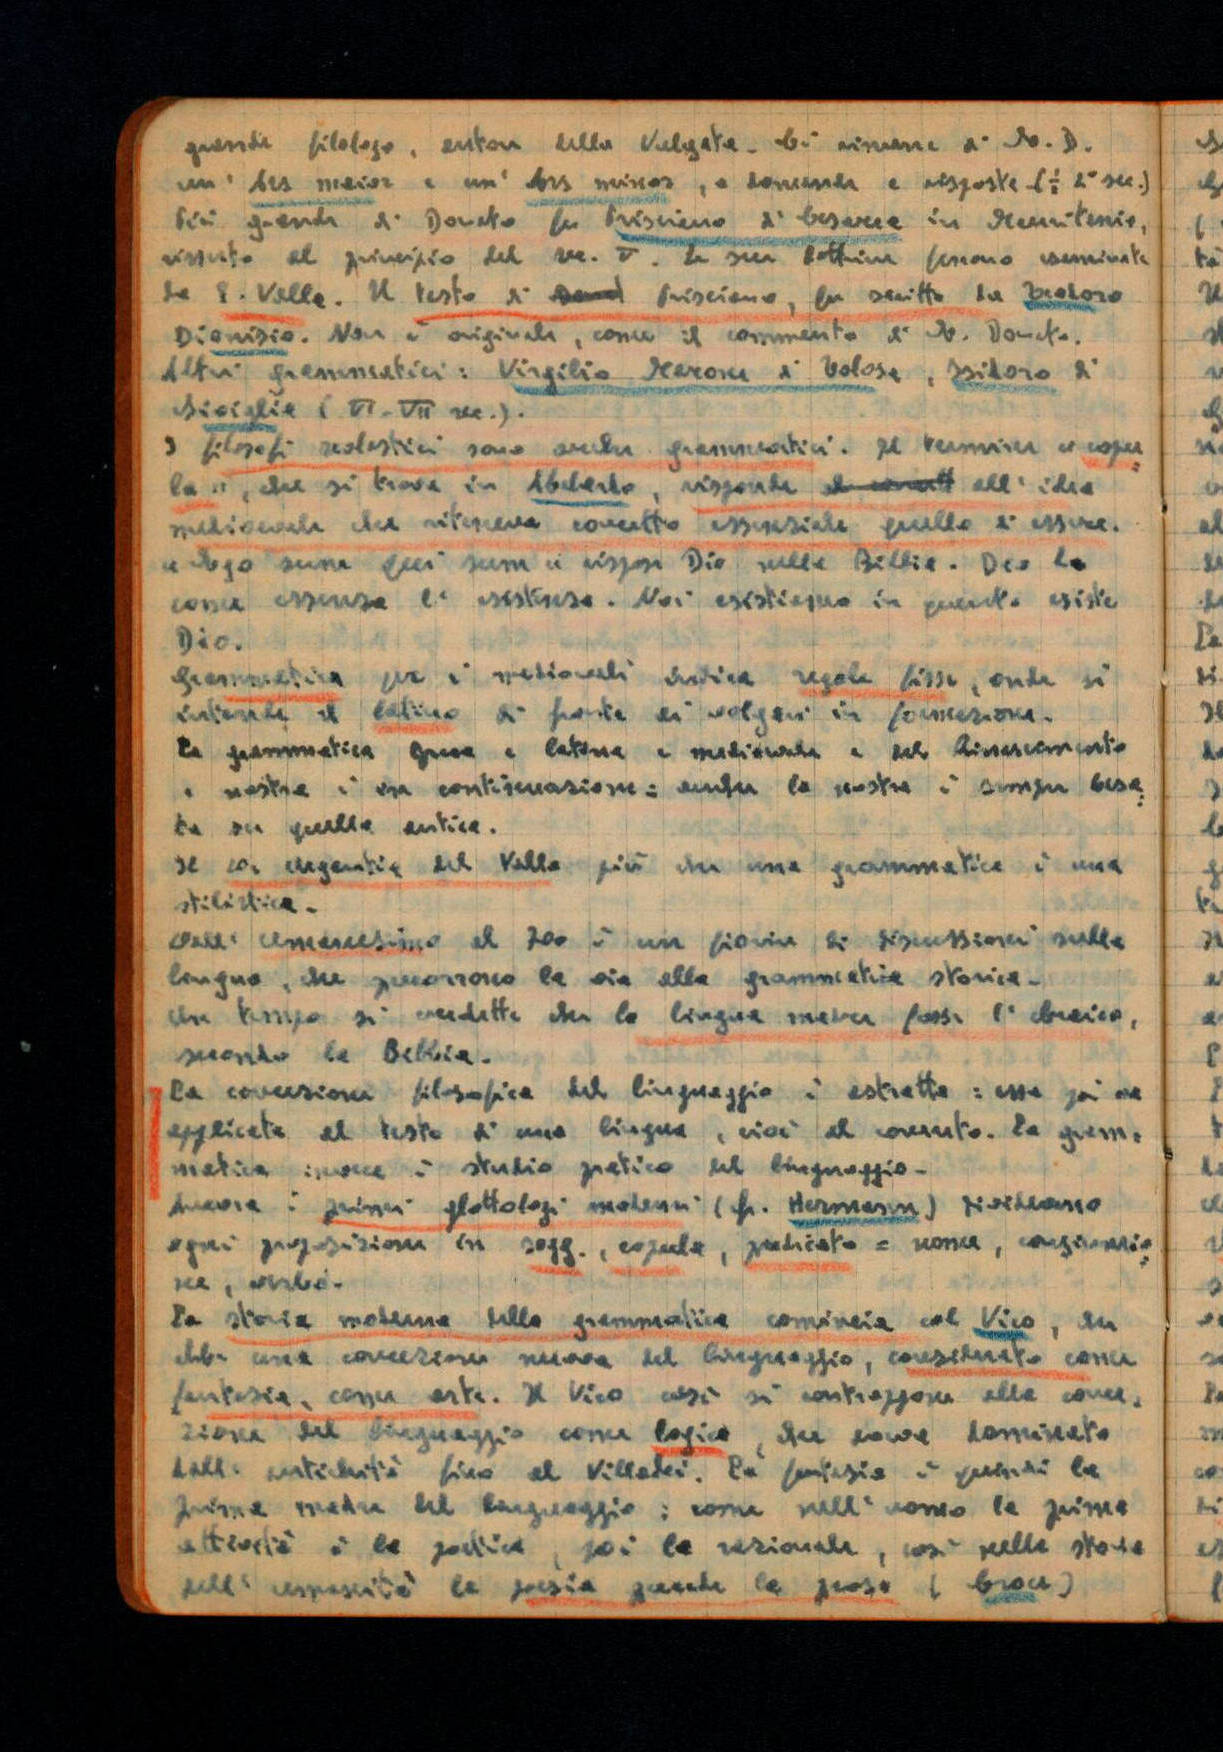 grande filologo, autore della Vulgata. Ci rimane di M. D.
un' Ars maior e un' Ars minor, a domande e risposte (½ 4° sec.)
Più grande di Donato fu Prisciano di Cesarea in Mauritania,
vissuto al principio del sec. V. La sua dottrina furono esaminate
da L. Valla. Il testo di Prisciano, fu scritto da Teodoro
Dionisio. Non è originale, come il commento di M. Donato.
Altri grammatici: Virgilio Marone di Tolosa, Isidoro di
Siviglia (VI-VII sec.).
I filosofi scolastici sono anche grammatici. Il termine « copu=
la », che si trova in Abelardo, risponde all' idea
medioevale che riteneva concetto essenziale quello di essere.
« Ego sum qui sum » rispose Dio nella Bibbia. Dio ha
come essenza l' esistenza. Noi esistiamo in quanto esiste
Dio.
Grammatica per i medioevali indica regole fisse, onde si
intende il latino di fronte ai volgari in formazione.
La grammatica greca e latina e medioevale e del Rinascimento
e nostra è una continuazione: anche la nostra è sempre basa=
ta su quella antica.
Il De elegantia del Valla più che una grammatica è una
stilistica.
Dall' umanesimo al 700 è un fiorire di discussioni sulla
lingua, che precorrono la via alla grammatica storica.
Un tempo si credette che la lingua madre fosse l' ebraico,
secondo la Bibbia.
La concezione filosofica del linguaggio è astratta: essa poi va
applicata al testo di una lingua, cioè al concreto. La gram=
matica invece è studio pratico del linguaggio.
Ancora i primi glottologi moderni (fr. Hermann) dividevano
ogni proposizione in sogg., copula, predicato = nome, congiunzio=
ne, verbo.
La storia moderna della grammatica comincia col Vico, che
ebbe una concezione nuova del linguaggio, considerato come
fantasia, come arte. Il Vico così si contrappone alla conce=
zione del linguaggio come logica, che aveva dominato
dall' antichità fino al Villadei. La fantasia è quindi la
prima madre del linguaggio: come nell' uomo la prima
attività è la poetica, poi la razionale, così nella storia
dell' umanità la poesia precede la prosa (Croce)